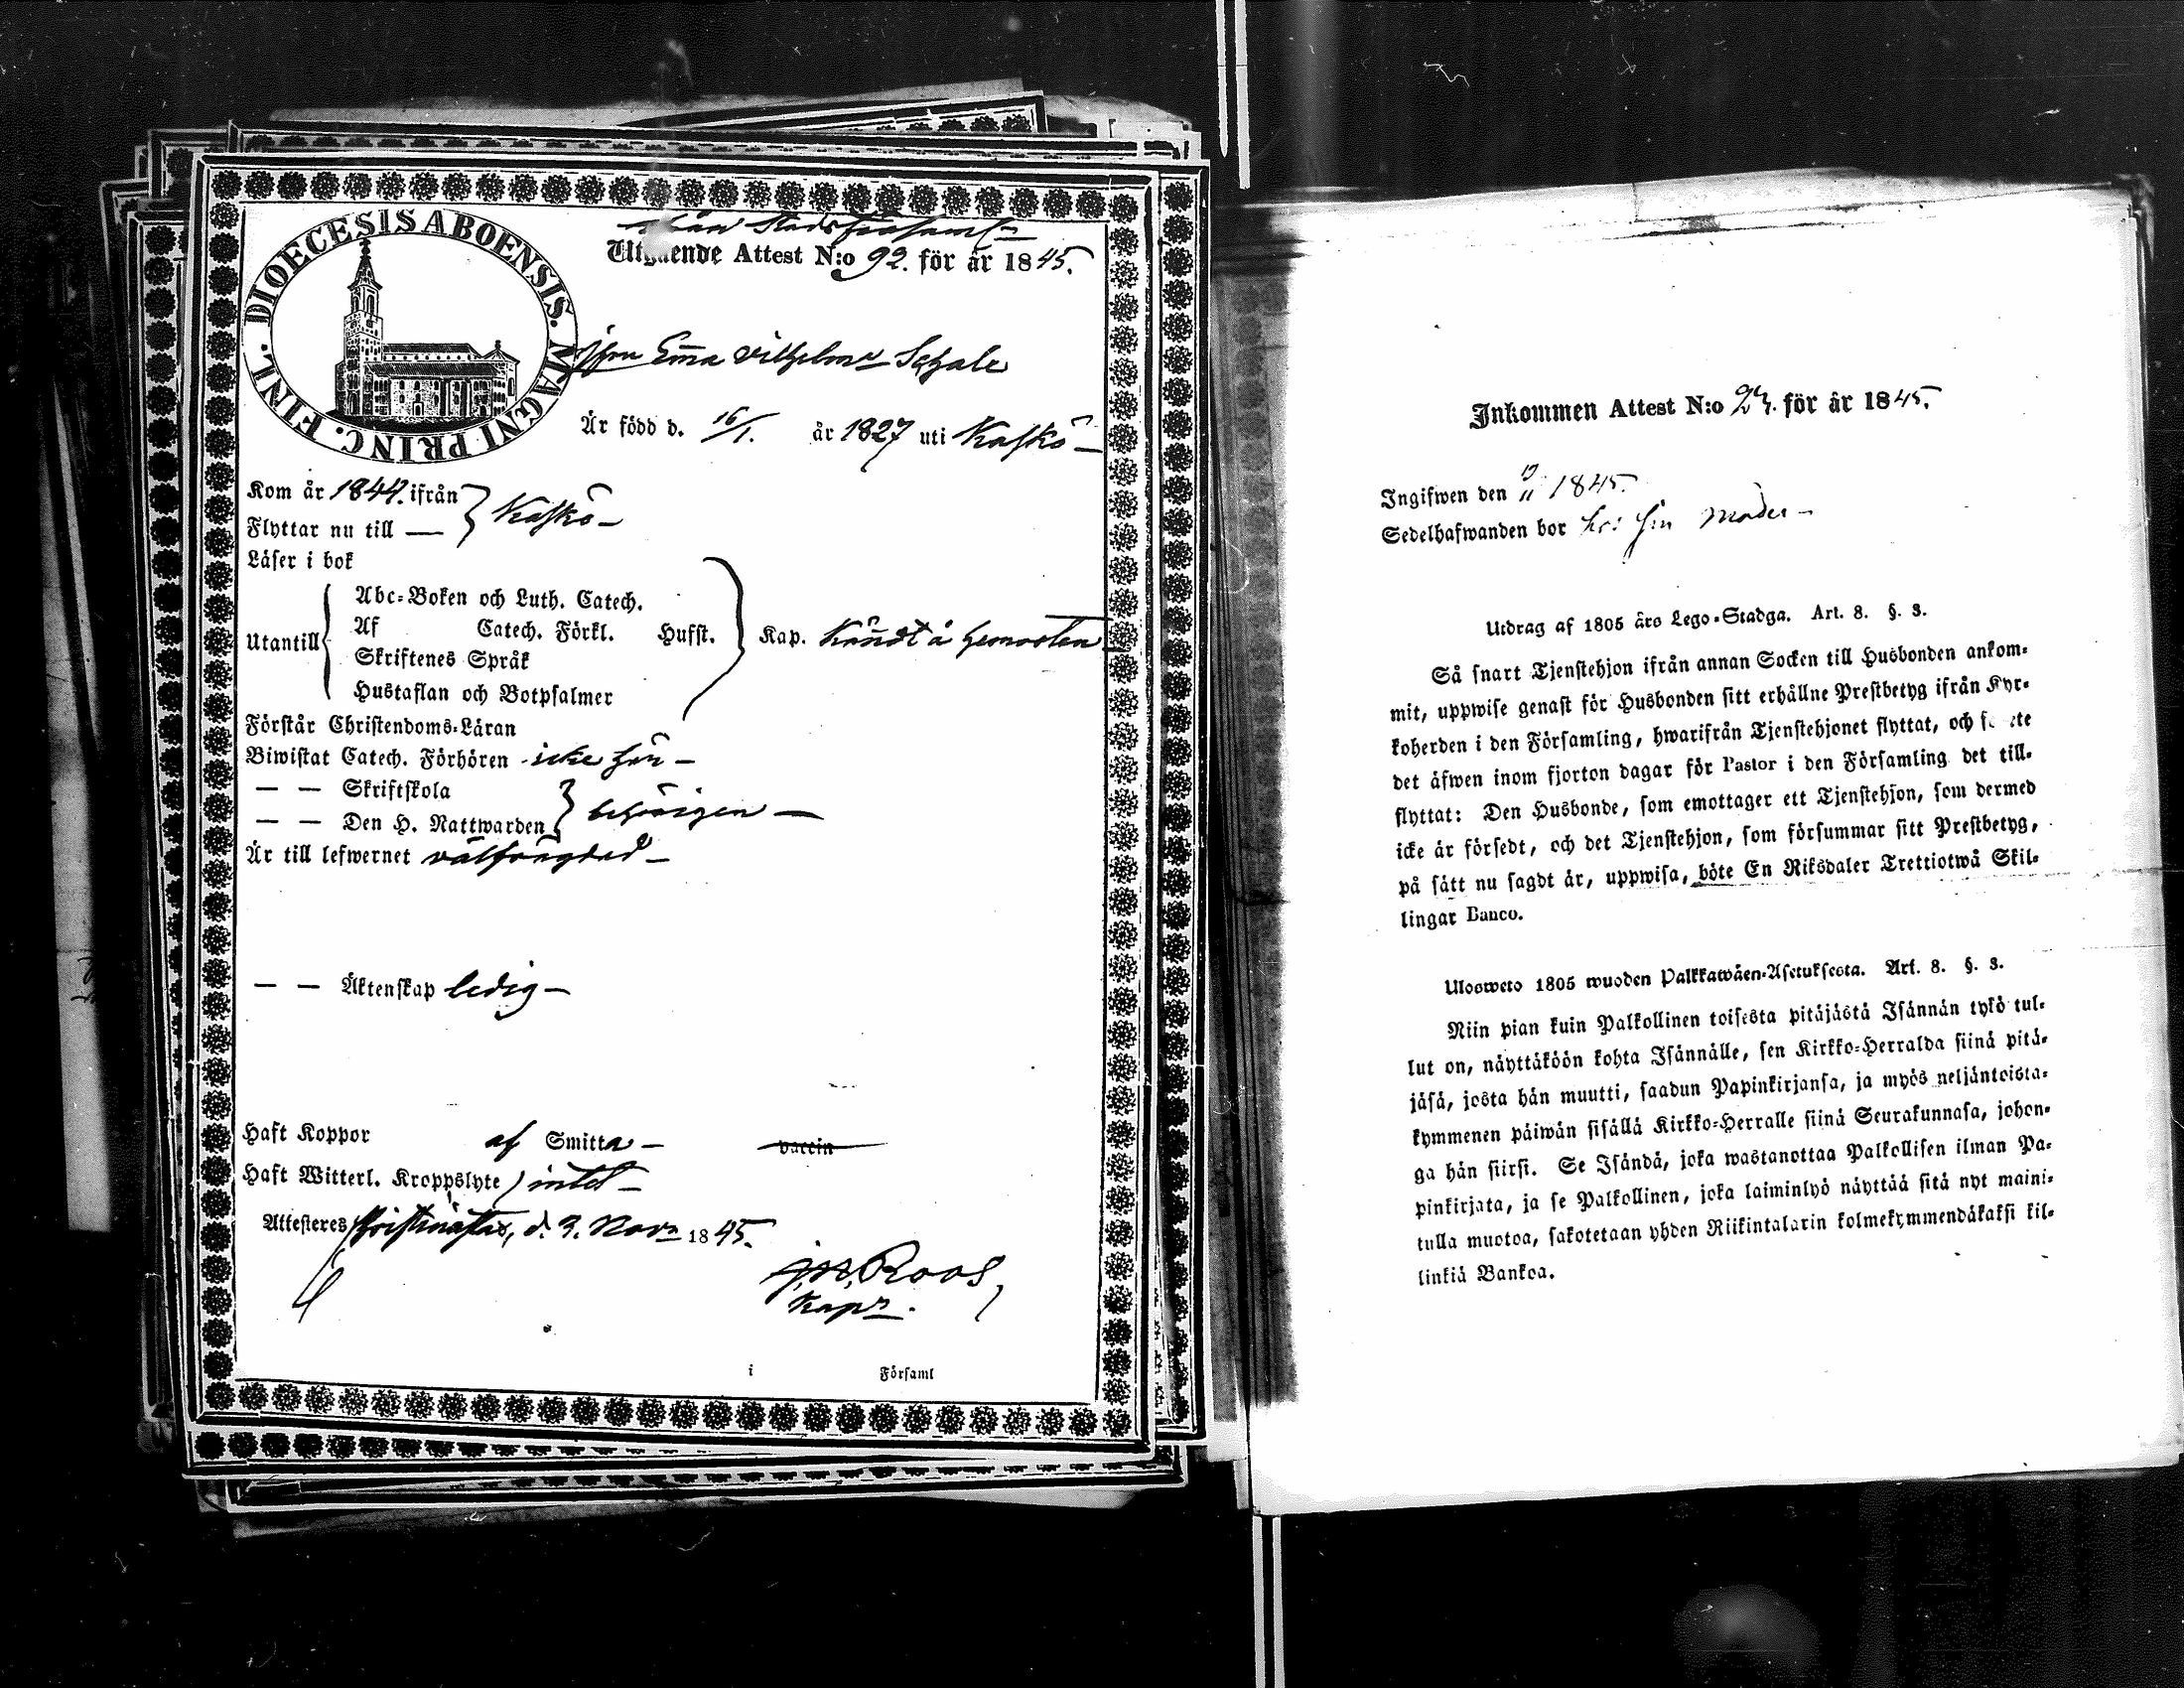 DIOECESIS ABOENSIS. MAGNI PRINC. FINL.
ifrån Stadsförsaml.
Utgående Attest N:o 92. för år 1845.
Jfru Em̄a Vilhelmª Schale
Är född d. 16/1. år 1827 uti Kaskö
Kom år 1844. ifrån
Flyttar nu till — } Kaskö
Läser i bok
Utantill
Abc-Boken och Luth. Catech.
Af Catech. Förkl. Husst. Kap. Kändt å hemorten
Skriftenes Språk
Hustaflan och Botpsalmer
Förstår Christendoms-Läran
Biwistat Catech. Förhören icke här —
— — Skriftskola
— — Den H. Nattwarden } behörigen —
Är till lefwernet välfrägdad —
— — Äktenskap ledig —
Haft Koppor af Smitta — vaccin
Haft Witterl. Kroppslyte intet —
Attesteres Kristinæstad, d. 3. Novr 1845.
Roos,
Kapn.
i Församl
Inkommen Attest N:o 23. för år 1845.
Ingifwen den 1845.
Sedelhafwanden bor hos sin moder —
Utdrag af 1805 års Lego-Stadga. Art. 8. §. 3.
Så snart Tjenstehjon ifrån annan Socken till Husbonden ankom-
mit, uppwise genast för Husbonden sitt erhållne Prestbetyg ifrån Kyr-
koherden i den Församling, hwarifrån Tjenstehjonet flyttat, och
det äfwen inom fjorton dagar för Pastor i den Församling det till-
flyttat: Den Husbonde, som emottager ett Tjenstehjon, som dermed
icke är försedt, och det Tjenstehjon, som försummar sitt Prestbetyg,
på sätt nu sagdt är, uppwisa, böte En Riksdaler Trettiotwå Skil-
lingar Banco.
Ulosweto 1805 wuoden Palkkawäen-Asetuksesta. Art. 8. §. 3.
Niin pian kuin Palkollinen toisesta pitäjästä Isännän tykö tul-
lut on, näyttäköön kohta Isännälle, sen Kirkko-Herralda siinä pitä-
jäsä, josta hän muutti, saadun Papinkirjansa, ja myös neljäntoista-
kymmenen päiwän sisällä Kirkko-Herralle siinä Seurakunnasa, johon-
ga hän siirsi. Se Isändä, joka wastanottaa Palkollisen ilman Pa-
pinkirjata, ja se Palkollinen, joka laiminlyö näyttää sitä nyt maini-
tulla muotoa, sakotetaan yhden Riikintalarin kolmekymmendäkaksi kil-
linkiä Bankoa.